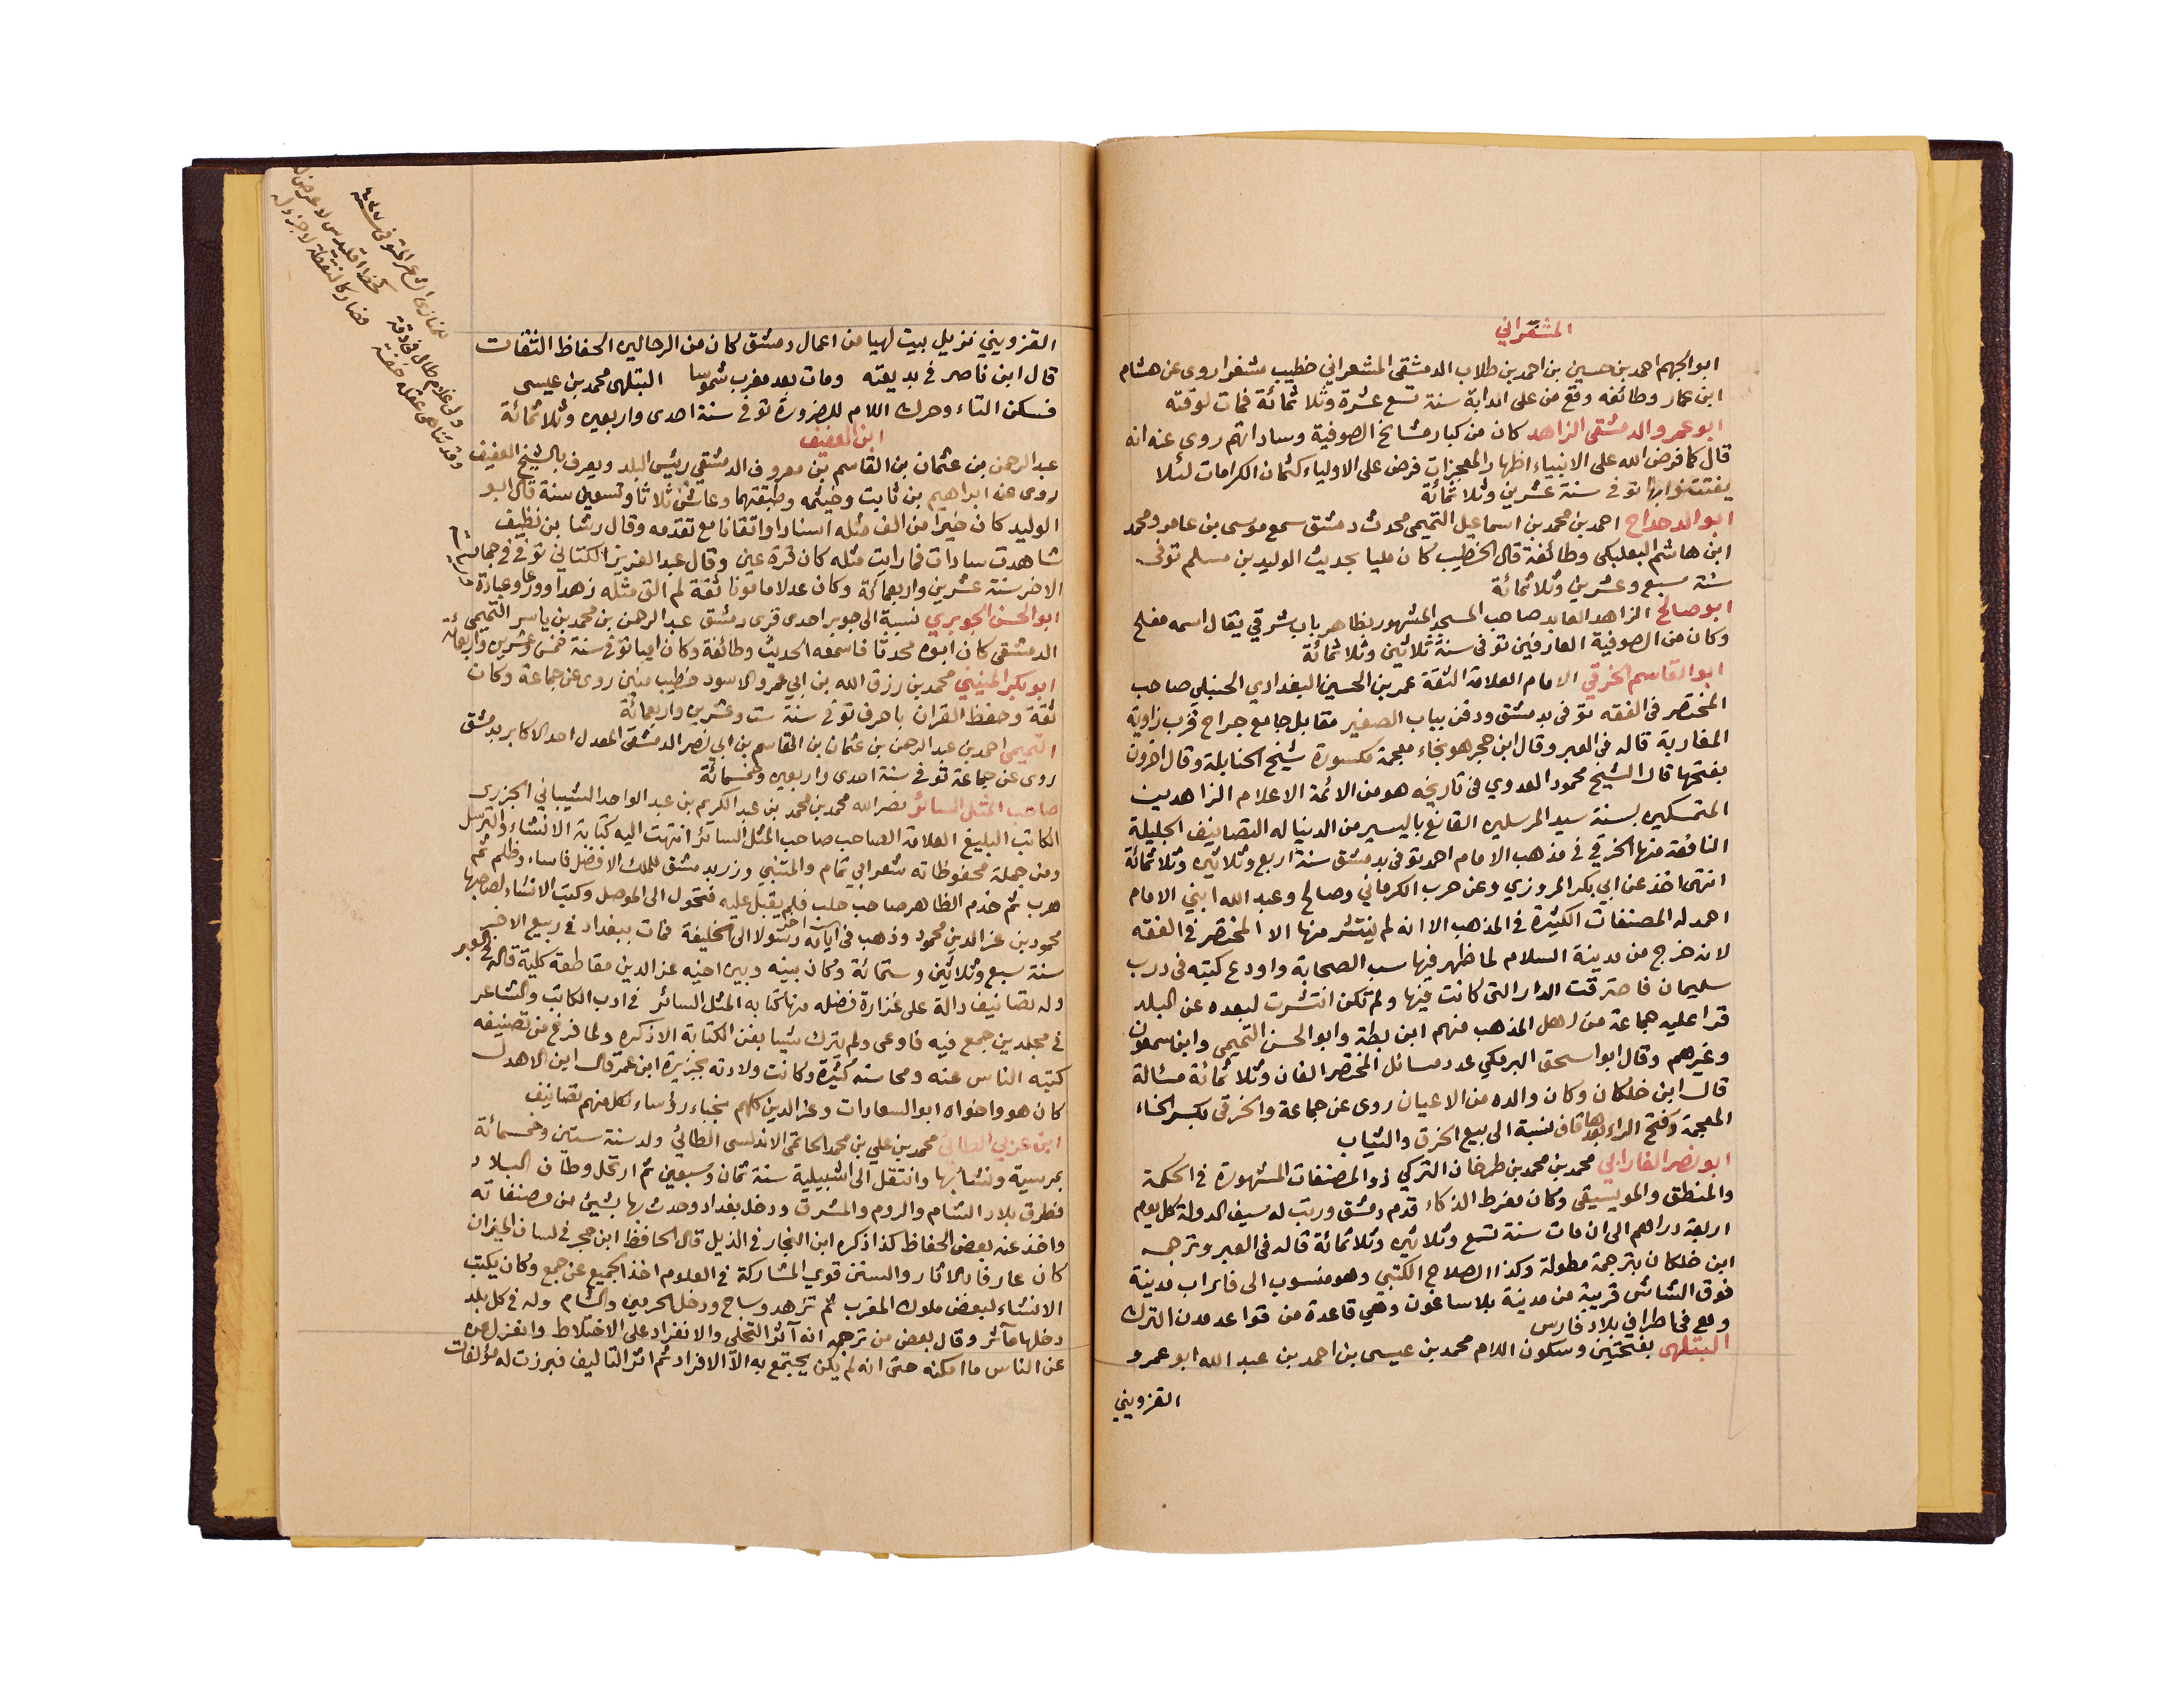 المشغراني
ابو الجهم احمد بن حسين بن احمد بن طلاب الدمشقى المشعرانى خطيب مشغرا روى عن هشام
ابن عمار وطائفه وقع من على الدابة سنة تسع عشرة وثلاثمائة فمات لوقته
ابو عمرو الدمشقى الزاهد كان من كبار مشايخ الصوفية وساداتهم روى عنه انه
قال كما فرض الله على الانبياء اظهار المعجزات فرض على الاولياء كتمان الكرامات لئلا
يفتتنوا بها توفى سنة عشرين وثلاثمائة
ابو الدحداح احمد بن محمد بن اسماعيل التميمى محدث دمشق سمع موسى بن عامر ومحمد
ابن هاشم البعلبكى وطائفة قال الخطيب كان مليا بحديث الوليد بن مسلم توفى
سنة سبع وعشرين وثلاثمائة
ابو صالح الزاهد العابد صاحب المسجد المشهور بظاهر باب شرقي يقال اسمه مفلح
وكان من الصوفية العارفين توفى سنة ثلاثين وثلاثمائة
ابو القاسم الخرقي الامام العلامة الثقة عمر بن الحسين البغدادي الحنبلي صاحب
المختصر فى الفقه توفى بدمشق ودفن بباب الصغير مقابل جامع جراح قرب زاوية
المغاربة قاله فى العبر وقال ابن حجر هو بخاء معجمة مكسورة شيخ الحنابلة وقال اخرون
بفتحها قال الشيخ محمود العدوي فى تاريخه هو من الائمة الاعلام الزاهدين
المتمسكين بسنة سيد المرسلين القانع باليسير من الدنيا له التصانيف الجليلة
النافعة منها الخرقي فى مذهب الامام احمد توفى بدمشق سنة اربع وثلاثين وثلاثمائة
انتهى اخذ عن ابي بكر المروزي وعن حرب الكرماني وصالح وعبد الله ابني الامام
احمد له المصنفات الكثيرة فى المذهب الا انه لم ينتشر منها الا المختصر فى الفقه
لانه خرج من مدينة السلام لما ظهر فيها سب الصحابة واودع كتبه فى درب
سليمان فاحترقت الدار التى كانت فيها ولم تكن انتشرت لبعده عن البلد
قرا عليه جماعة من اهل المذهب منهم ابن بطة وابو الحسن التميمى وابن سمعون
وغيرهم وقال ابو اسحق البرمكي عدد مسائل المختصر الفان وثلاثمائة مسالة
قال ابن خلكان وكان والده من الاعيان روى عن جماعة والخرقى بكسر الخاء
المعجمة وفتح الراء بعدها قاف نسبة الى بيع الخرق والثياب
ابو نصر الفارابي محمد بن محمد بن طرخان التركي ذو المصنفات المشهورة فى الحكمة
والمنطق والموسيقى وكان مفرط الذكاء قدم دمشق ورتب له سيف الدولة كل يوم
اربعة دراهم الى ان مات سنة تسع وثلاثين وثلاثمائة قاله فى العبر وترجمه
ابن خلكان بترجمة مطولة وكذا الصلاح الكتبي وهو منسوب الى فاراب مدينة
فوق الشاش قريبة من مدينة بلاساغون وهى قاعدة من قواعد مدن الترك
وهى فى اطراف بلاد فارس
البتلهى بفتحتين وسكون اللام محمد بن عيسى بن احمد بن عبد الله ابو عمرو
القزويني
القزويني نزيل بيت لهيا من اعمال دمشق كان من الرحالين الحفاظ الثقات
قال ابن ناصر فى بديعته ومات بعد مغرب شموسا البتلهى محمد بن عيسى
فسكن التاء وحرك اللام للضرورة توفى سنة احدى واربعين وثلاثمائة
ابن العفيف
عبد الرحمن بن عثمان بن القاسم بن معروف الدمشقي رئيس البلد ويعرف بالشيخ العفيف
روى عن ابراهيم بن ثابت وخيثمه وطبقتهما وعاش ثلاثا وتسعين سنة قال ابو
الوليد كان خيرا من الف مثله اسنادا واتقانا مع تقدمه وقال رشا بن نظيف
شاهدت سادات فما رايت مثله كان قرة عين وقال عبد العزيز الكتاني توفى فى جمادى
الاخر سنة عشرين واربعمائة وكان عدلا مامونا ثقة لم الق مثله زهدا وورعا وعبادة
ابو الحسن الجوبري نسبة الى جوبر احدى قرى دمشق عبد الرحمن بن محمد بن ياسر التميمى
الدمشقى كان ابوه محدثا فاسمعه الحديث وطائفة وكان اميا توفى سنة خمس وعشرين واربعمائة
ابو بكر المنيني محمد بن رزق الله بن ابي عمرو الاسود خطيب منين روى عن جماعة وكان
ثقة وحفظ القران باحرف توفى سنة ست وعشرين واربعمائة
التميمى احمد بن عبد الرحمن بن عثمان بن القاسم بن ابي نصر الدمشقى المعدل احد الاكابر بدمشق
روى عن جماعة توفى سنة احدى واربعين وخمسمائة
صاحب المثل السائر نصر الله محمد بن محمد بن عبد الكريم بن عبد الواحد الشيباني الجزرى
الكاتب البليغ العلامة الصاحب صاحب المثل السائر انتهت اليه كتابة الانشاء والترسل
ومن جملة محفوظاته شعر ابي تمام والمتنبي وزر بدمشق للملك الافضل فاساء وظلم ثم
هرب ثم خدم الظاهر صاحب حلب فلم يقبل عليه فتحول الى الموصل وكتب الانشاء لصاحبها
محمود بن عز الدين محمود وذهب فى رسولا الى الخليفة فمات ببغداد فى ربيع الاخر
سنة سبع وثلاثين وستمائة وكان بينه وبين اخيه عز الدين مقاطعة كلية قاله فى العبر
وله تصانيف دالة على غزارة فضله منها كتابه المثل السائر فى ادب الكاتب والشاعر
فى مجلدين جمع فيه فاوعى ولم يترك شيئا بفن الكتابة الا ذكره ولما فرغ من تصنيفه
كتبه الناس عنه ومحاسنه كثيرة وكانت ولادته بجزيرة ابن عمر قال ابن الاهدل
كان هو واخواه ابو السعادات وعز الدين كلهم نجباء رؤساء لكل منهم تصانيف
ابن عربى الطائى محمد بن علي بن محمد الحاتمى الاندلسى الطائي ولد سنة ستين وخمسمائة
بمرسية ونشا بها وانتقل الى اشبيلية سنة ثمان وسبعين ثم ارتحل وطاف البلاد
فطرق بلاد الشام والروم والمشرق ودخل بغداد وحدث بها بشيئ من مصنفاته
واخذ عنه بعض الحفاظ كذا ذكره ابن النجار فى الذيل قال الحافظ ابن حجر فى لسان الميزان
كان عارفا بالاثار والسنن قوي المشاركة فى العلوم اخذ الجميع عن جمع وكان يكتب
الانشاء لبعض ملوك المغرب ثم تزهد وساح ودخل الحرمين والشام وله فى كل بلد
دخلها مآثر وقال بعض من ترجمه انه آثر التخلى والانفراد على الاختلاط وانعزل
عن الناس ما امكنه حتى انه لم يكن يجتمع به الا الافراد ثم اثر التاليف فبرزت له مؤلفات